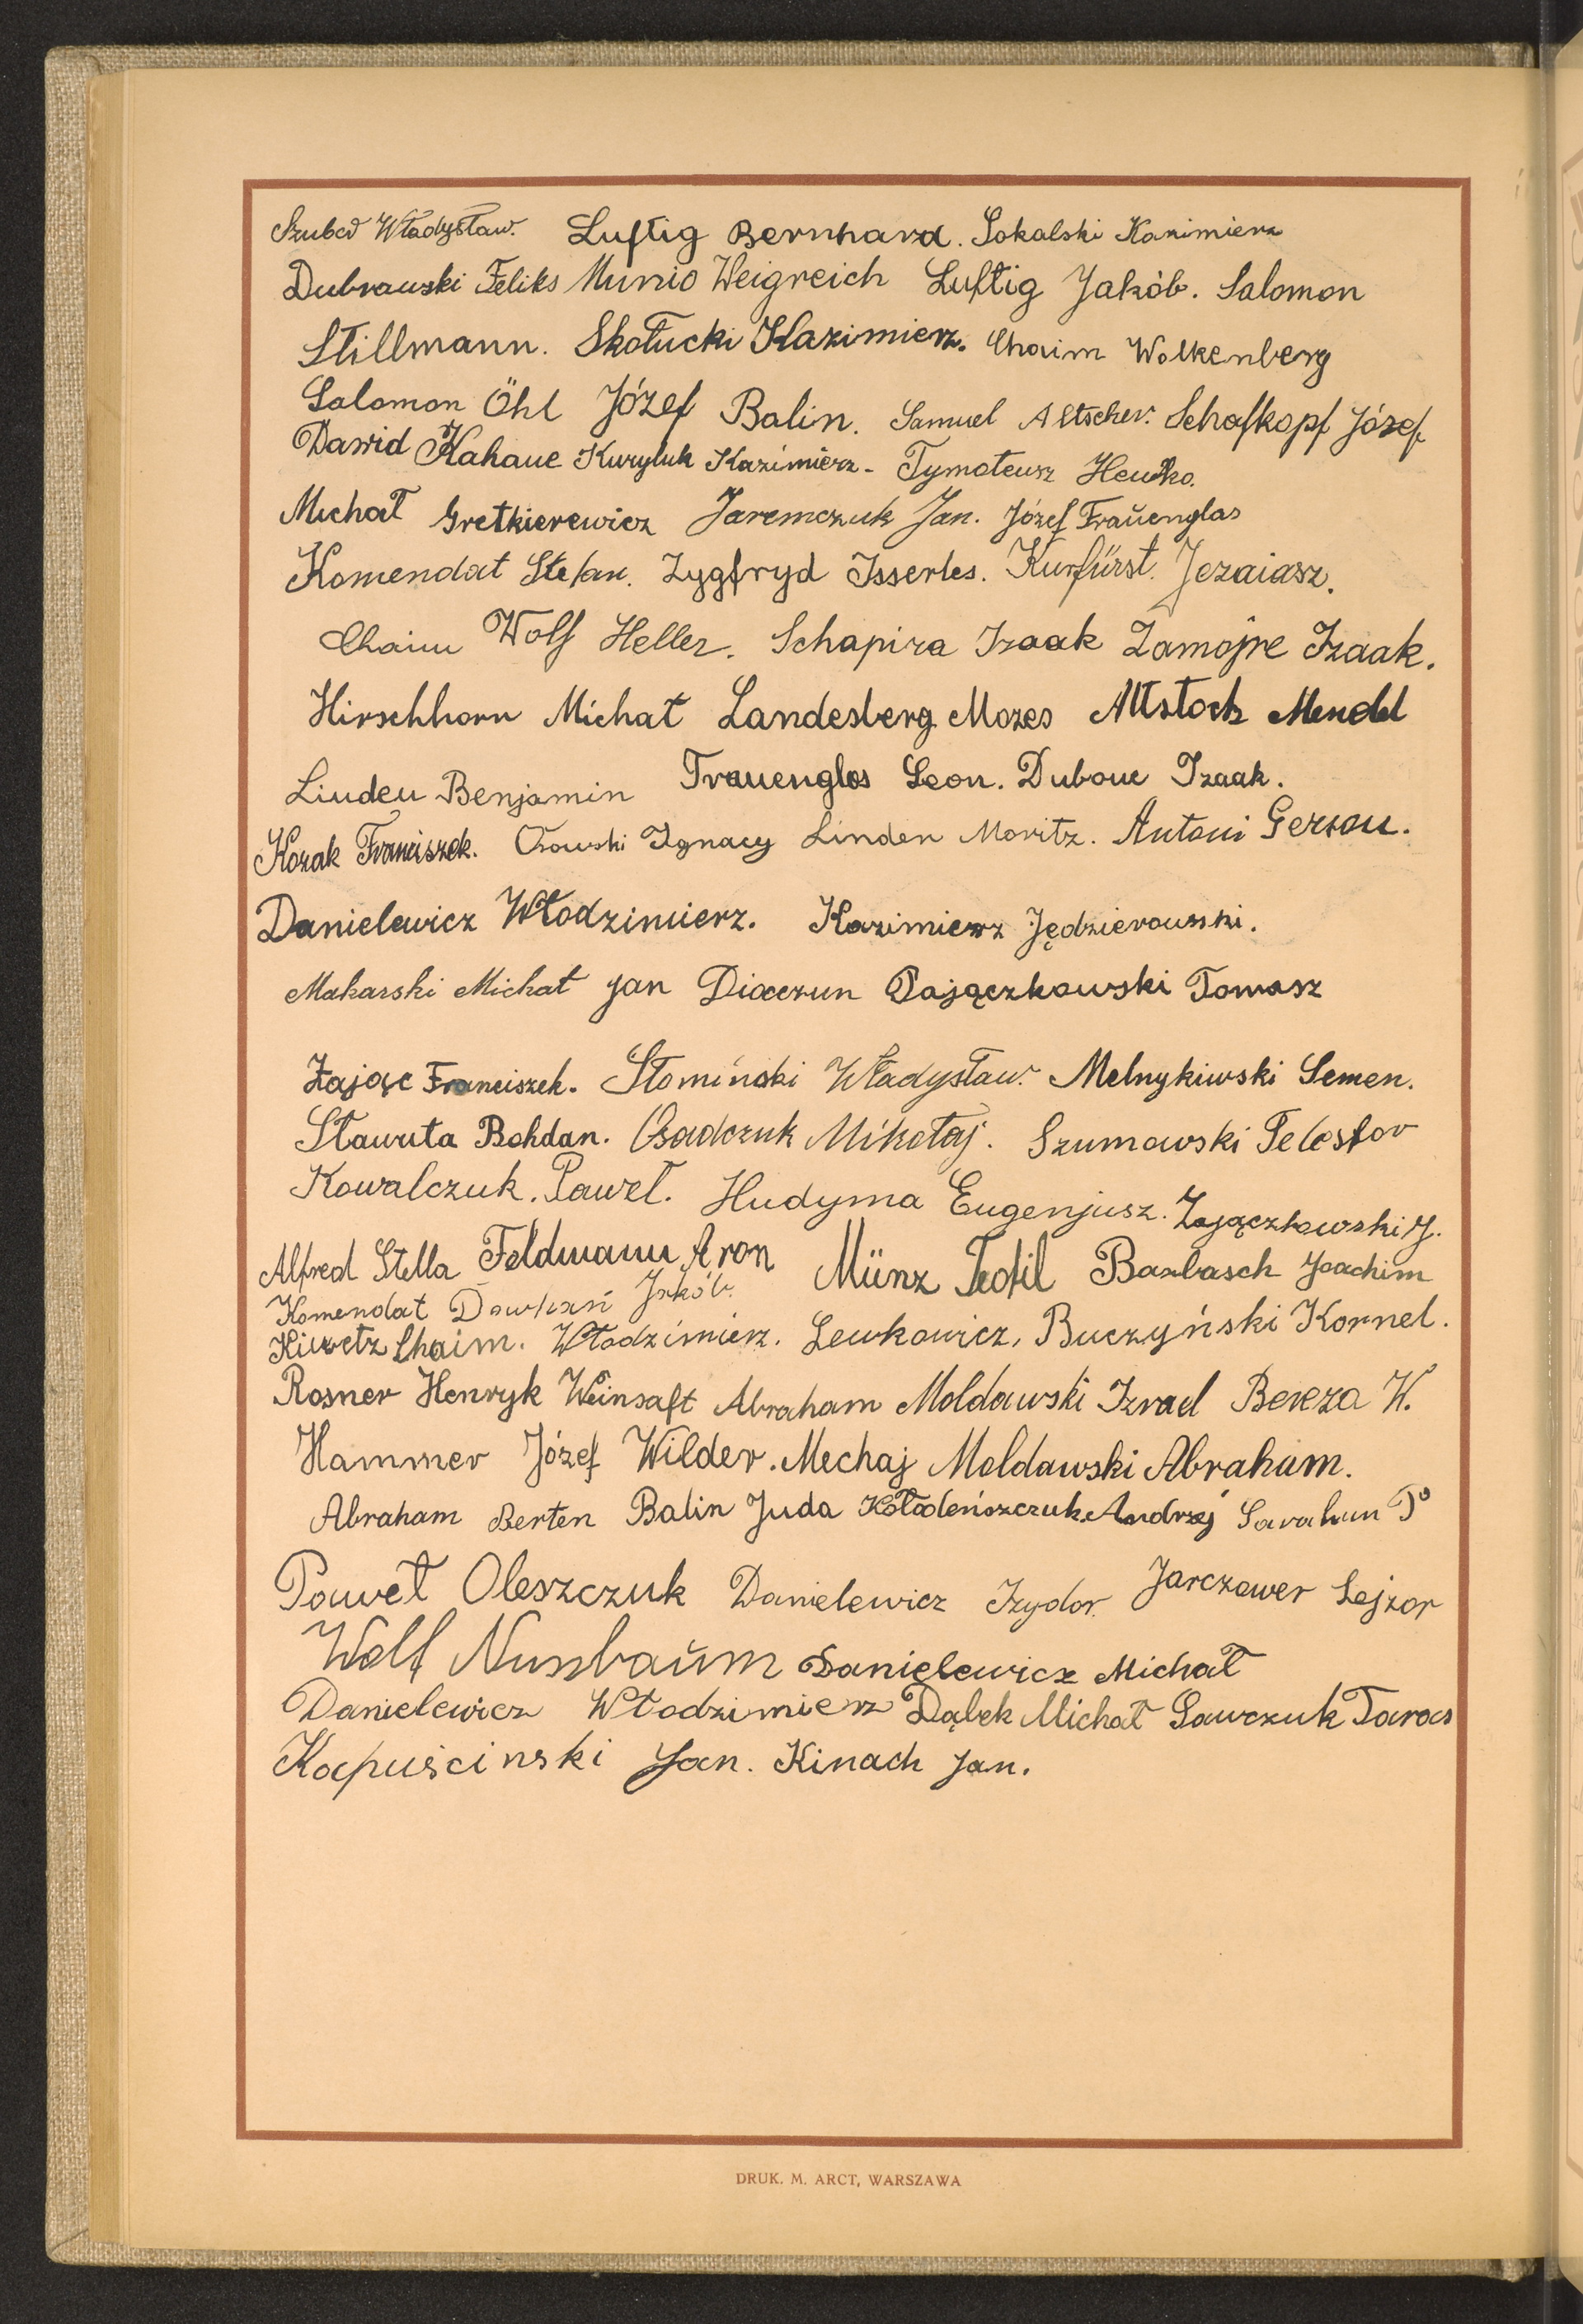 Szubed Władysław. Luftig Bernhard. Sokalski Kazimierz
Dubrawski Feliks Munio Weigreich Luftig Jakób. Salomon
Stillmann. Skołucki Kazimierz. Chaim Wolkenberg
Salomon Öhl Józef Balin. Samuel Altscher. Schafkopf Józef
Dawid Kahane Kuryluk Kazimierz - Tymoteusz
Michał Gretkierewicz Jaremczuk Jan. Józef Fraŭenglas
Komendat Stefan. Zygfryd Isserles. Kurfürst. Jezaiasz.
Chaim Wolf Heller. Schapira Izaak Zamojre Izaak.
Hirschhorn Michał Landesberg Mozes Altstock Mendel
Linden Benjamin Frauenglas Leon. Izaak.
Kozak Franciszek. Osowski Ignacy Linden Moritz. Antoni Gerson.
Danielewicz Włodzimierz. Kazimierz Jędzierowski.
Makarski Michał Jan Diaczun Zajączkowski Tomasz
Zając Franciszek. Słomiński Władysław. Melnykiwski Semen.
Sławuta Bohdan. Osadczuk Mikołaj. Szumowski
Kowalczuk. Paweł. Hudyma Eugenjusz. Zajączkowski J.
Alfred Stella Feldmann Aron Münz Teofil Barbasch Joachim
Komendat Jakób.
Chaim. Włodzimierz. Lewkowicz, Buczyński Kornel.
Rosner Henryk Weinsaft Abraham Mołdawski Izrael Bereza W.
Hammer Józef Wilder. Mechaj Mołdawski Abraham.
Abraham Berten Balin Juda Kołodeńszczuk Andrzej Sarahun P
Paweł Oleszczuk Danielewicz Izydor. Jarczower Lejzor
Wolf Nussbaŭm Danielewicz Michał
Danielewicz Włodzimierz Dąbek Michał Sawczuk Taras
Kapuścinski Jan. Kinach Jan.
DRUK. M. ARCT, WARSZAWA